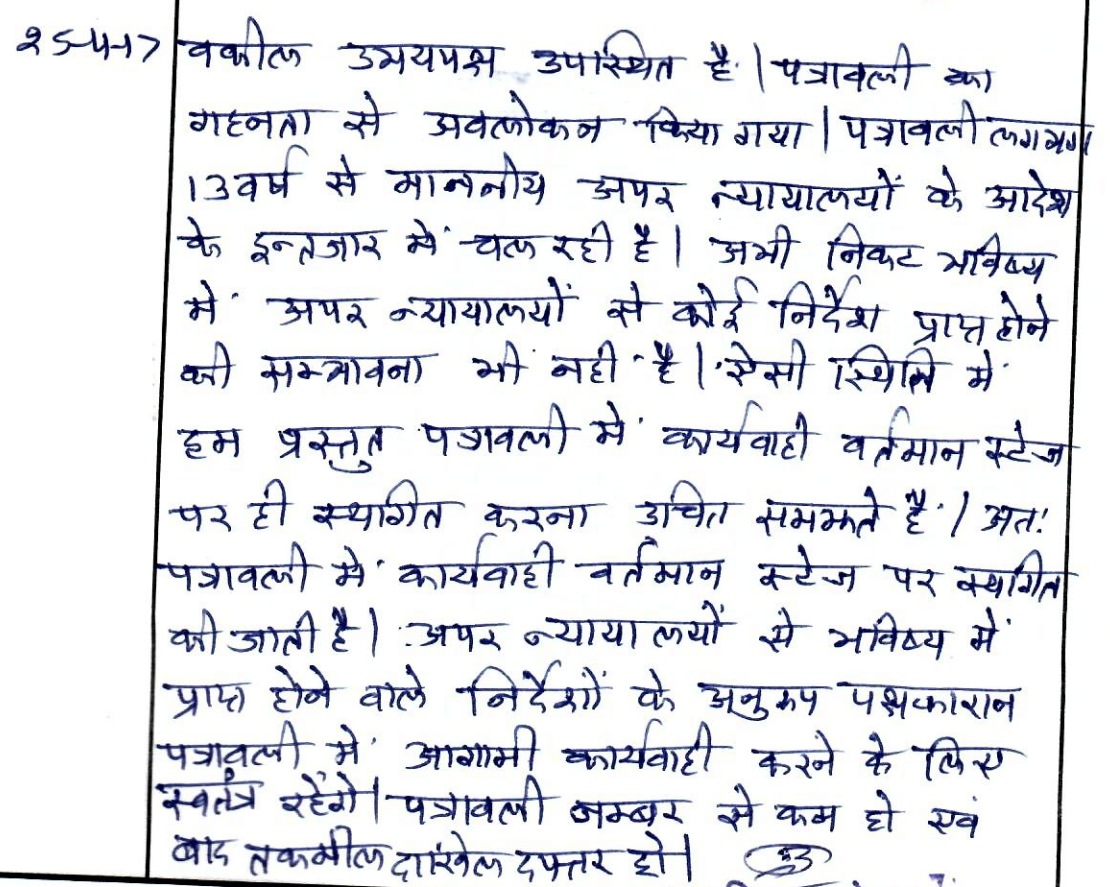 25-4-17 वकील उभयपक्ष उपस्थित है। पत्रावली का
गहनता से अवलोकन किया गया। पत्रावली लगभग
13 वर्ष से माननीय अपर न्यायालयों के आदेश
के इन्तजार में चल रही है। अभी निकट भविष्य
में अपर न्यायालयों से कोई निर्देश प्राप्त होने
की सम्भावना भी नहीं है। ऐसी स्थिति में
हम प्रस्तुत पत्रावली में कार्यवाही वर्तमान स्टेज
पर ही स्थगित करना उचित समझते हैं। अतः
पत्रावली में कार्यवाही वर्तमान स्टेज पर स्थगित
की जाती है। अपर न्यायालयों से भविष्य में
प्राप्त होने वाले निर्देशों के अनुरूप पक्षकारान
पत्रावली में आगामी कार्यवाही करने के लिए
स्वतंत्र रहेंगे। पत्रावली नम्बर से कम हो एवं
बाद तकमील दाखिल दफ्तर हो।